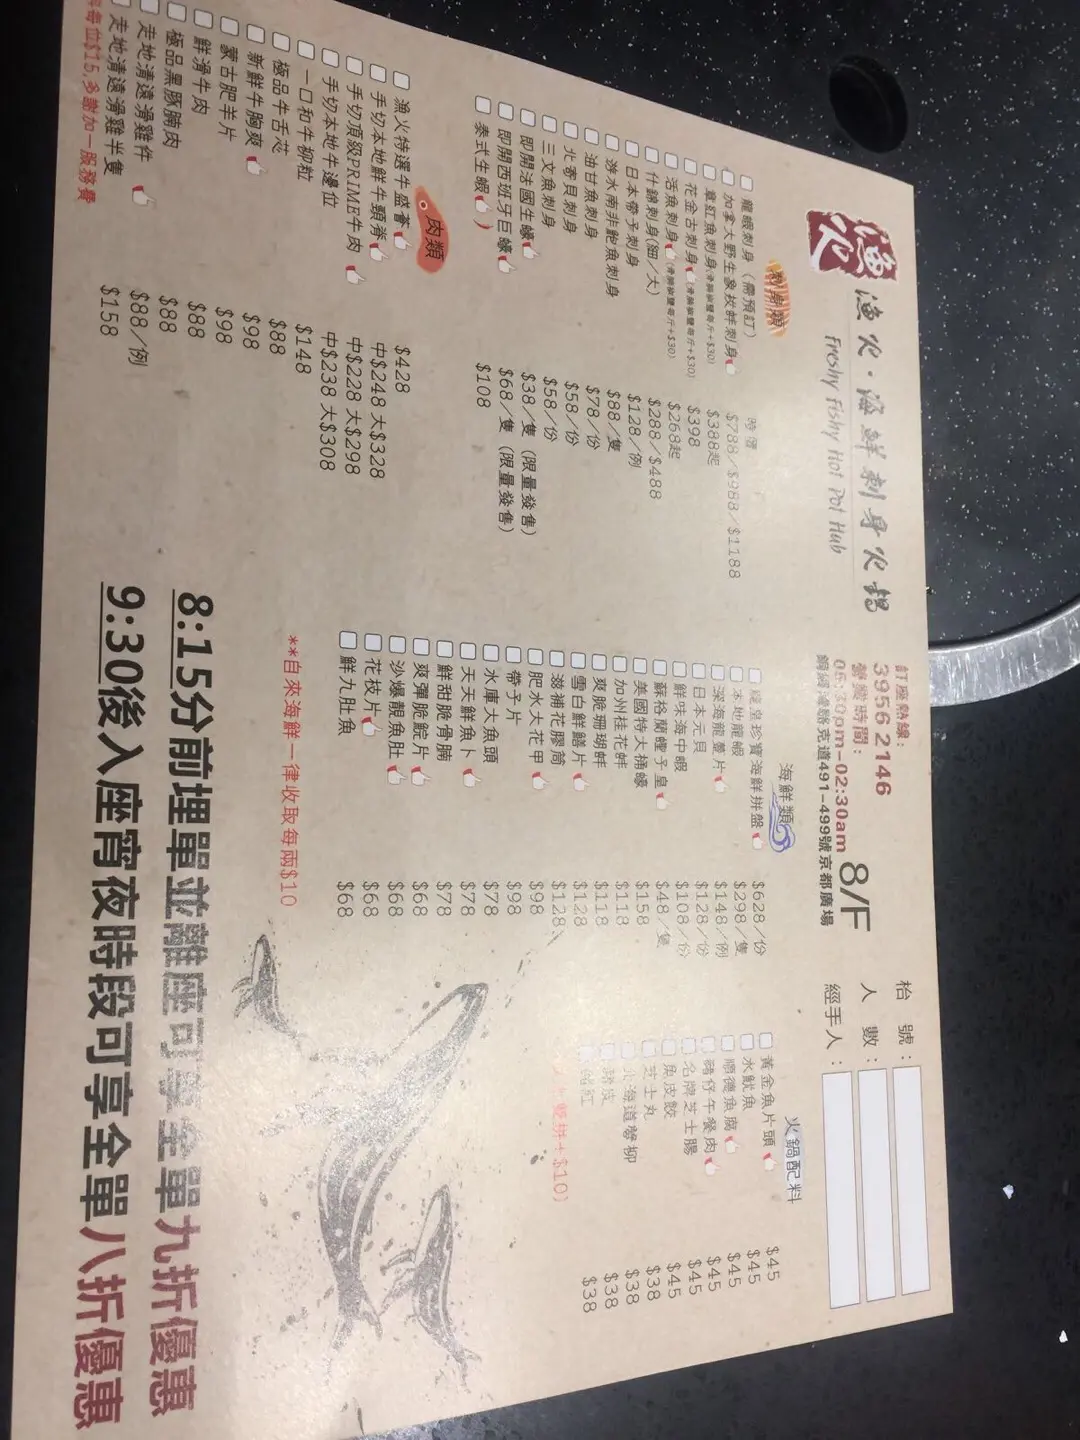 漁火
漁火·海鮮刺身火鍋
Freshy Fishy Hot Pot Hub
訂座熱線:
3956 2146
營業時間:
06:30pm-02:30am
銅鑼灣駱克道491-499號京都廣場
8/F
枱號:
人數:
經手人:
刺身類
龍蝦刺身 (需預訂) 時價
加拿大野生象拔蚌刺身 $788/$988/$1188
章紅魚刺身 $388起
花金古刺身 $398
活魚刺身 $268起
什錦刺身(細/大) $288/$488
日本帶子刺身 $128/例
游水南非鮑魚刺身 $88/隻
油甘魚刺身 $78/份
北寄貝刺身 $58/份
三文魚刺身 $58/份
即開法國生蠔 $38/隻 (限量發售)
即開西班牙巨蠔 $68/隻 (限量發售)
泰式生蝦 $108
肉類
漁火特選牛盛薈 $428
手切本地鮮牛頸脊 中$248 大$328
手切頂級PRIME牛肉 中$228 大$298
手切本地牛邊位 中$238 大$308
一口和牛柳粒 $148
極品牛舌芯 $88
新鮮牛胸爽 $98
蒙古肥羊片 $98
鮮滑牛肉 $88
極品黑豚腩肉 $88
走地清遠滑雞件 $88/例
走地清遠滑雞半隻 $158
每位$15,多謝加一服務費
海鮮類
龍皇珍寶海鮮拼盤 $628/份
本地龍蝦 $298/隻
深海龍躉片 $148/例
日本元貝 $128/份
鮮味海中蝦 $108/份
蘇格蘭蟶子皇 $48/隻
美國特大桶蠔 $158
加州桂花蚌 $118
爽脆珊瑚蚌 $118
雪白鮮鱔片 $128
滋補花膠筒 $128
肥水大花甲 $98
帶子片 $98
水庫大魚頭 $78
天天鮮魚卜 $78
鮮甜脆骨腩 $78
爽彈脆鯇片 $68
沙爆靚魚肚 $68
花枝片 $68
鮮九肚魚 $68
**自來海鮮一律收取每兩$10
火鍋配料
黃金魚片頭 $45
水魷魚 $45
順德魚腐 $45
豬仔午餐肉 $45
名牌芝士腸 $45
魚皮餃 $45
芝士丸 $38
北海道蟹柳 $38
豬皮 $38
豬紅 $38
雙拼+$10)
8:15分前埋單並離座可享全單九折優惠
9:30後入座宵夜時段可享全單八折優惠